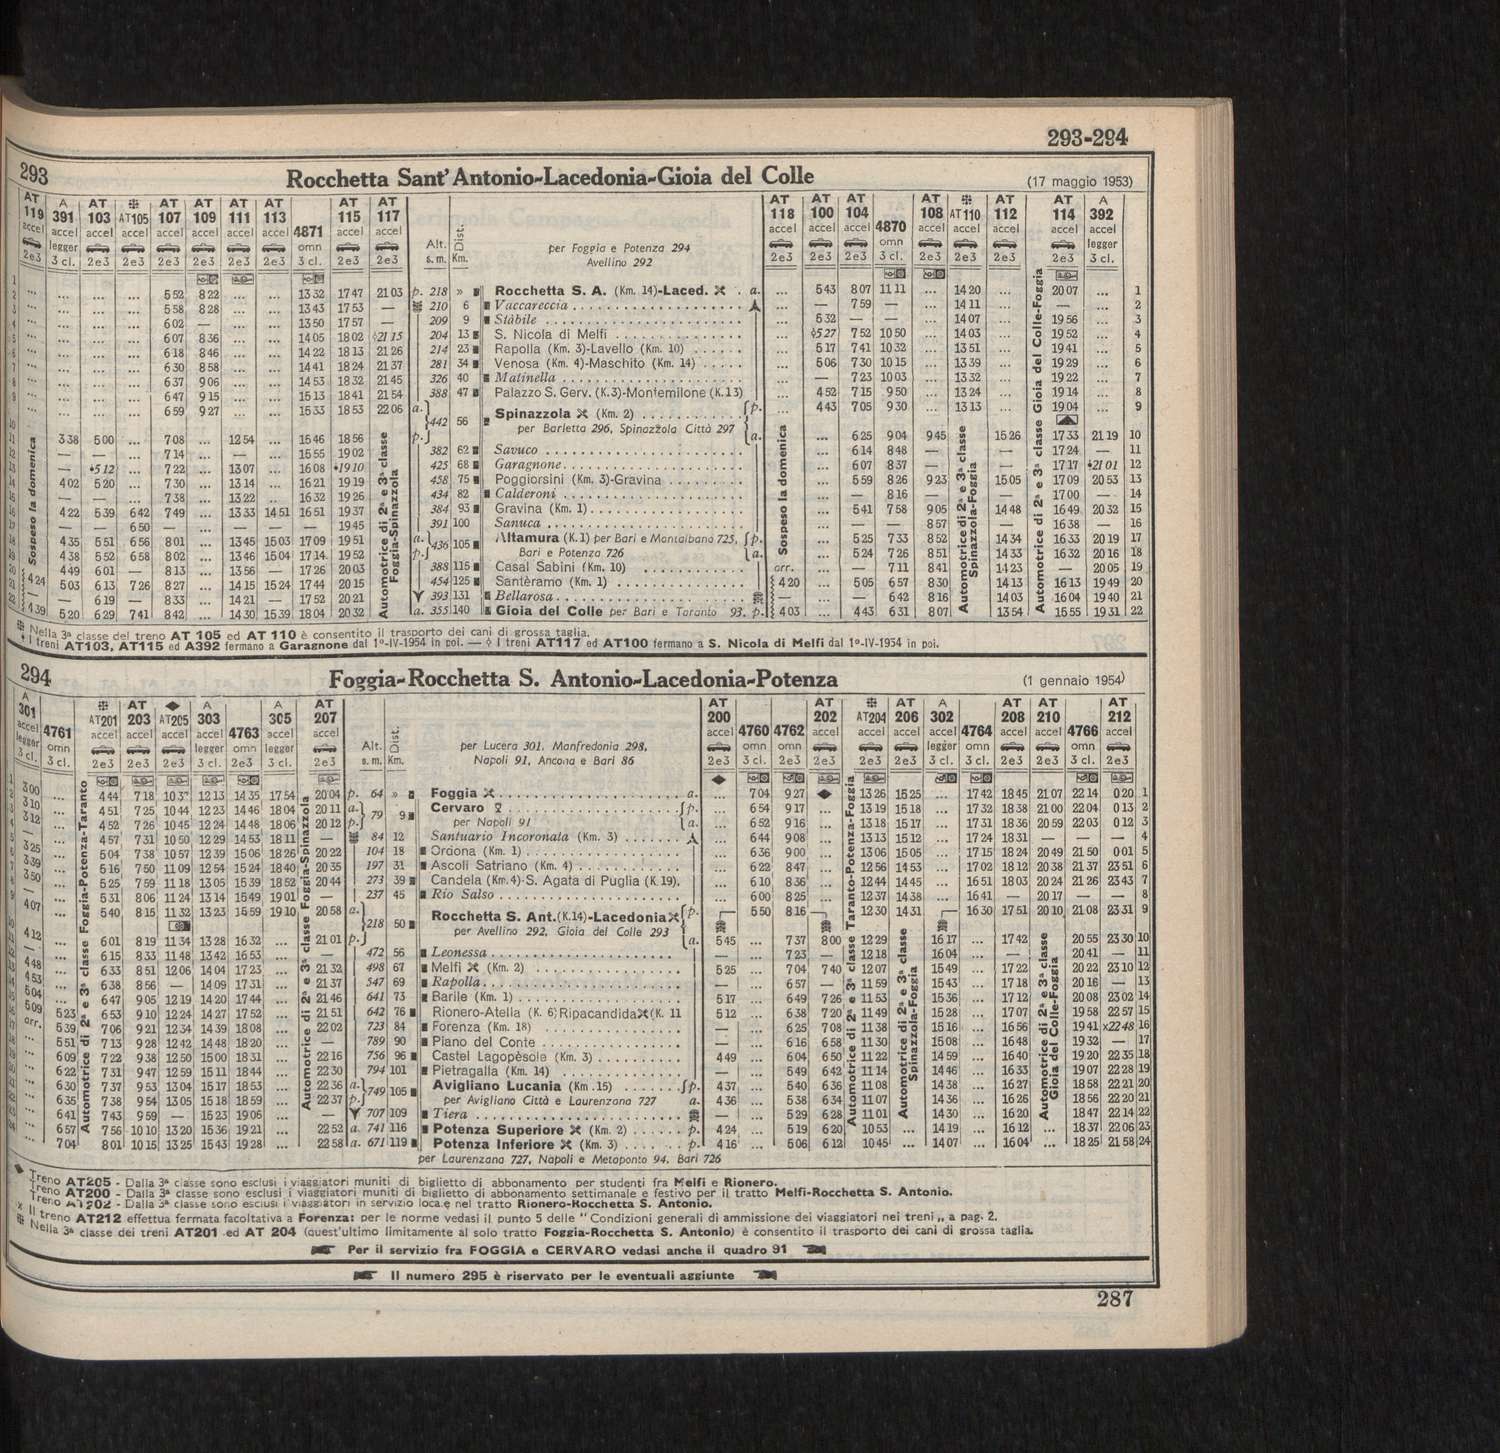 293-294
293 Rocchetta Sant'Antonio-Lacedonia-Gioia del Colle (17 maggio 1953)
AT 119 accel 2e3 | A 391 accel legger 3 cl. | AT 103 accel 2e3 | AT105 accel 2e3 | AT 107 accel 2e3 | AT 109 accel 2e3 | AT 111 accel 2e3 | AT 113 accel 2e3 | 4871 omn 3 cl. | AT 115 accel 2e3 | AT 117 accel 2e3 | Alt. s. m. | Dist. Km. | per Foggia e Potenza 294 Avellino 292 | AT 118 accel 2e3 | AT 100 accel 2e3 | AT 104 accel 2e3 | 4870 omn 3 cl. | AT 108 accel 2e3 | AT110 accel 2e3 | AT 112 accel 2e3 | AT 114 accel 2e3 | A 392 accel legger 3 cl.
... ... ... ... 5 52 8 22 ... ... 13 32 17 47 21 03 p. 218 » Rocchetta S. A. (Km. 14)-Laced. . a. ... 5 43 8 07 11 11 ... 14 20 ... 20 07 ... 1
... ... ... ... 5 58 8 28 ... ... 13 43 17 53 — 210 6 Vaccareccia ... — 7 59 — ... 14 11 ... — ... 2
... ... ... ... 6 02 — ... ... 13 50 17 57 — 209 9 Stàbile ... 5 32 — — ... 14 07 ... 19 56 ... 3
... ... ... ... 6 07 8 36 ... ... 14 05 18 02 ◊21 15 204 13 S. Nicola di Melfi ... ◊5 27 7 52 10 50 ... 14 03 ... 19 52 ... 4
... ... ... ... 6 18 8 46 ... ... 14 22 18 13 21 26 214 23 Rapolla (Km. 3)-Lavello (Km. 10) ... 5 17 7 41 10 32 ... 13 51 ... 19 41 ... 5
... ... ... ... 6 30 8 58 ... ... 14 41 18 24 21 37 281 34 Venosa (Km. 4)-Maschito (Km. 14) ... 5 06 7 30 10 15 ... 13 39 ... 19 29 ... 6
... ... ... ... 6 37 9 06 ... ... 14 53 18 32 21 45 326 40 Matinella ... — 7 23 10 03 ... 13 32 ... 19 22 ... 7
... ... ... ... 6 47 9 15 ... ... 15 13 18 41 21 54 388 47 Palazzo S. Gerv. (K.3)-Montemilone (K.13) ... 4 52 7 15 9 50 ... 13 24 ... 19 14 ... 8
... ... ... ... 6 59 9 27 ... ... 15 33 18 53 22 06 a. 442 56 Spinazzola (Km. 2) p. ... 4 43 7 05 9 30 ... 13 13 ... 19 04 ... 9
3 38 5 00 ... 7 08 ... 12 54 ... 15 46 18 56 p. per Barletta 296, Spinazzola Città 297 a. ... 6 25 9 04 9 45 15 26 17 33 21 19 10
— — ... 7 14 ... — ... 15 55 19 02 382 62 Savuco ... 6 14 8 48 — — 17 24 — 11
— 5 12 ... 7 22 ... 13 07 ... 16 08 19 10 425 68 Garagnone ... 6 07 8 37 — — 17 17 21 01 12
4 02 5 20 ... 7 30 ... 13 14 ... 16 21 19 19 458 75 Poggiorsini (Km. 3)-Gravina ... 5 59 8 26 9 23 15 05 17 09 20 53 13
— — ... 7 38 ... 13 22 ... 16 32 19 26 434 82 Calderoni ... — 8 16 — — 17 00 — 14
4 22 5 39 6 42 7 49 ... 13 33 14 51 16 51 19 37 384 93 Gravina (Km. 1) ... 5 41 7 58 9 05 14 48 16 49 20 32 15
— — 6 50 — ... — — — 19 45 391 100 Sanuca ... — — 8 57 — 16 38 — 16
4 35 5 51 6 56 8 01 ... 13 45 15 03 17 09 19 51 a. 436 105 Altamura (K.1) per Bari e Montalbano 725, p. ... 5 25 7 33 8 52 14 34 16 33 20 19 17
4 38 5 52 6 58 8 02 ... 13 46 15 04 17 14 19 52 p. Bari e Potenza 726 a. ... 5 24 7 26 8 51 14 33 16 32 20 16 18
4 49 6 01 — 8 13 ... 13 56 — 17 26 20 03 388 115 Casal Sabini (Km. 10) arr. ... — 7 11 8 41 14 23 — 20 05 19
4 24 5 03 6 13 7 26 8 27 ... 14 15 15 24 17 44 20 15 454 125 Santèramo (Km. 1) 4 20 ... 5 05 6 57 8 30 14 13 16 13 19 49 20
— 6 19 — 8 33 ... 14 21 — 17 52 20 21 393 131 Bellarosa ... — 6 42 8 16 14 03 16 04 19 40 21
4 39 5 20 6 29 7 41 8 42 ... 14 30 15 39 18 04 20 32 a. 355 140 Gioia del Colle per Bari e Taranto 93. p. 4 03 ... 4 43 6 31 8 07 13 54 15 55 19 31 22
Sospeso la domenica
Automotrice di 2ª e 3ª classe Foggia-Spinazzola
Sospeso la domenica
Automotrice di 2ª e 3ª classe Spinazzola-Foggia
Automotrice di 2ª e 3ª classe Gioia del Colle-Foggia
Nella 3ª classe del treno AT 105 ed AT 110 è consentito il trasporto dei cani di grossa taglia.
I treni AT103, AT115 ed A392 fermano a Garagnone dal 1º-IV-1954 in poi. — ◊ I treni AT117 ed AT100 fermano a S. Nicola di Melfi dal 1º-IV-1954 in poi.
294 Foggia-Rocchetta S. Antonio-Lacedonia-Potenza (1 gennaio 1954)
A 301 accel legger 3 cl. | 4761 omn 3 cl. | AT201 accel 2e3 | AT 203 accel 2e3 | AT205 accel 2e3 | A 303 legger 3 cl. | 4763 omn 2e3 | A 305 accel legger 3 cl. | AT 207 accel 2e3 | Alt. s. m. | Dist. Km. | per Lucera 301, Manfredonia 298, Napoli 91, Ancona e Bari 86 | AT 200 accel 2e3 | 4760 omn 3 cl. | 4762 omn 2e3 | AT 202 accel 2e3 | AT204 accel 2e3 | AT 206 accel 2e3 | A 302 accel legger 3 cl. | 4764 omn 3 cl. | AT 208 accel 2e3 | AT 210 accel 2e3 | 4766 omn 3 cl. | AT 212 accel 2e3
3 00 ... 4 44 7 18 12 13 14 35 17 54 20 04 p. 64 » Foggia a. ... 7 04 9 27 13 26 15 25 ... 17 42 18 45 21 07 22 14 0 20 1
3 10 ... 4 51 7 25 10 44 12 23 14 46 18 04 20 11 a. 79 9 Cervaro p. ... 6 54 9 17 13 19 15 18 ... 17 32 18 38 21 00 22 04 0 13 2
3 12 ... 4 52 7 26 10 45 12 24 14 48 18 06 20 12 p. per Napoli 91 a. ... 6 52 9 16 13 18 15 17 ... 17 31 18 36 20 59 22 03 0 12 3
— ... 4 57 7 31 10 50 12 29 14 53 18 11 — 84 12 Santuario Incoronata (Km. 3) ... 6 44 9 08 13 13 15 12 ... 17 24 18 31 — — — 4
3 25 ... 5 04 7 38 10 57 12 39 15 06 18 26 20 22 104 18 Ordona (Km. 1) ... 6 36 9 00 13 06 15 05 ... 17 15 18 24 20 49 21 50 0 01 5
3 39 ... 5 16 7 50 11 09 12 54 15 24 18 40 20 35 197 31 Ascoli Satriano (Km. 4) ... 6 22 8 47 12 56 14 53 ... 17 02 18 12 20 38 21 37 23 51 6
3 50 ... 5 25 7 59 11 18 13 05 15 39 18 52 20 44 273 39 Candela (Km. 4)-S. Agata di Puglia (K.19). ... 6 10 8 36 12 44 14 45 ... 16 51 18 03 20 24 21 26 23 43 7
— ... 5 31 8 06 11 24 13 14 15 49 19 01 — 237 45 Rio Salso ... 6 00 8 25 12 37 14 38 ... 16 41 — 20 17 — — 8
4 07 ... 5 40 8 15 11 32 13 23 15 59 19 10 20 58 a. 218 50 Rocchetta S. Ant.(K.14)-Lacedonia p. 5 50 8 16 12 30 14 31 16 30 17 51 20 10 21 08 23 31 9
4 12 ... 6 01 8 19 11 34 13 28 16 32 ... 21 01 p. per Avellino 292, Gioia del Colle 293 a. 5 45 ... 7 37 8 00 12 29 16 17 ... 17 42 20 55 23 30 10
— ... 6 15 8 33 11 48 13 42 16 53 ... — 472 56 Leonessa — ... 7 23 — 12 18 16 04 ... — 20 41 — 11
4 48 ... 6 33 8 51 12 06 14 04 17 23 ... 21 32 498 67 Melfi (Km. 2) 5 25 ... 7 04 7 40 12 07 15 49 ... 17 22 20 22 23 10 12
4 53 ... 6 38 8 56 — 14 09 17 31 ... 21 37 547 69 Rapolla — ... 6 57 — 11 59 15 43 ... 17 18 20 16 — 13
5 04 ... 6 47 9 05 12 19 14 20 17 44 ... 21 46 641 73 Barile (Km. 1) 5 17 ... 6 49 7 26 11 53 15 36 ... 17 12 20 08 23 02 14
5 09 5 23 6 53 9 10 12 24 14 27 17 52 ... 21 51 642 76 Rionero-Atella (K. 6) Ripacandida (K. 11 5 12 ... 6 38 7 20 11 49 15 28 ... 17 07 19 58 22 57 15
arr. 5 39 7 06 9 21 12 34 14 39 18 08 ... 22 02 723 84 Forenza (Km. 18) — ... 6 25 7 08 11 38 15 16 ... 16 56 19 41 x22 48 16
... 5 51 7 13 9 28 12 42 14 48 18 20 ... — 789 90 Piano del Conte — ... 6 16 6 58 11 30 15 08 ... 16 48 19 32 — 17
... 6 09 7 22 9 38 12 50 15 00 18 31 ... 22 16 756 96 Castel Lagopèsole (Km. 3) 4 49 ... 6 04 6 50 11 22 14 59 ... 16 40 19 20 22 35 18
... 6 22 7 31 9 47 12 59 15 11 18 44 ... 22 30 794 101 Pietragalla (Km. 14) — ... 5 49 6 42 11 14 14 46 ... 16 33 19 07 22 28 19
... 6 30 7 37 9 53 13 04 15 17 18 53 ... 22 36 a. 749 105 Avigliano Lucania (Km. 15) p. 4 37 ... 5 40 6 36 11 08 14 38 ... 16 27 18 58 22 21 20
... 6 35 7 38 9 54 13 05 15 18 18 59 ... 22 37 p. per Avigliano Città e Laurenzana 727 a. 4 36 ... 5 38 6 34 11 07 14 36 ... 16 26 18 56 22 20 21
... 6 41 7 43 9 59 — 15 23 19 06 ... — 707 109 Tiera — ... 5 29 6 28 11 01 14 30 ... 16 20 18 47 22 14 22
... 6 57 7 56 10 10 13 20 15 36 19 21 ... 22 52 a. 741 116 Potenza Superiore (Km. 2) p. 4 24 ... 5 19 6 20 10 53 ... 14 19 ... 16 12 ... 18 37 22 06 23
... 7 04 8 01 10 15 13 25 15 43 19 28 ... 22 58 a. 671 119 Potenza Inferiore (Km. 3) p. 4 16 ... 5 06 6 12 10 45 ... 14 07 ... 16 04 ... 18 25 21 58 24
per Laurenzana 727, Napoli e Metaponto 94, Bari 726
Automotrice di 2ª e 3ª classe Foggia-Potenza-Taranto
Automotrice di 2ª e 3ª classe Foggia-Spinazzola
Automotrice di 2ª e 3ª classe Taranto-Potenza-Foggia
Automotrice di 2ª e 3ª classe Spinazzola-Foggia
Automotrice di 2ª e 3ª classe Gioia del Colle-Foggia
Treno AT205 - Dalla 3ª classe sono esclusi i viaggiatori muniti di biglietto di abbonamento per studenti fra Melfi e Rionero.
Treno AT200 - Dalla 3ª classe sono esclusi i viaggiatori muniti di biglietto di abbonamento settimanale e festivo per il tratto Melfi-Rocchetta S. Antonio.
Treno AT202 - Dalla 3ª classe sono esclusi i viaggiatori in servizio locale nel tratto Rionero-Rocchetta S. Antonio.
x Il treno AT212 effettua fermata facoltativa a Forenza: per le norme vedasi il punto 5 delle "Condizioni generali di ammissione dei viaggiatori nei treni„ a pag. 2.
Nella 3ª classe dei treni AT201 ed AT 204 (quest'ultimo limitamente al solo tratto Foggia-Rocchetta S. Antonio) è consentito il trasporto dei cani di grossa taglia.
Per il servizio fra FOGGIA e CERVARO vedasi anche il quadro 91
Il numero 295 è riservato per le eventuali aggiunte
287